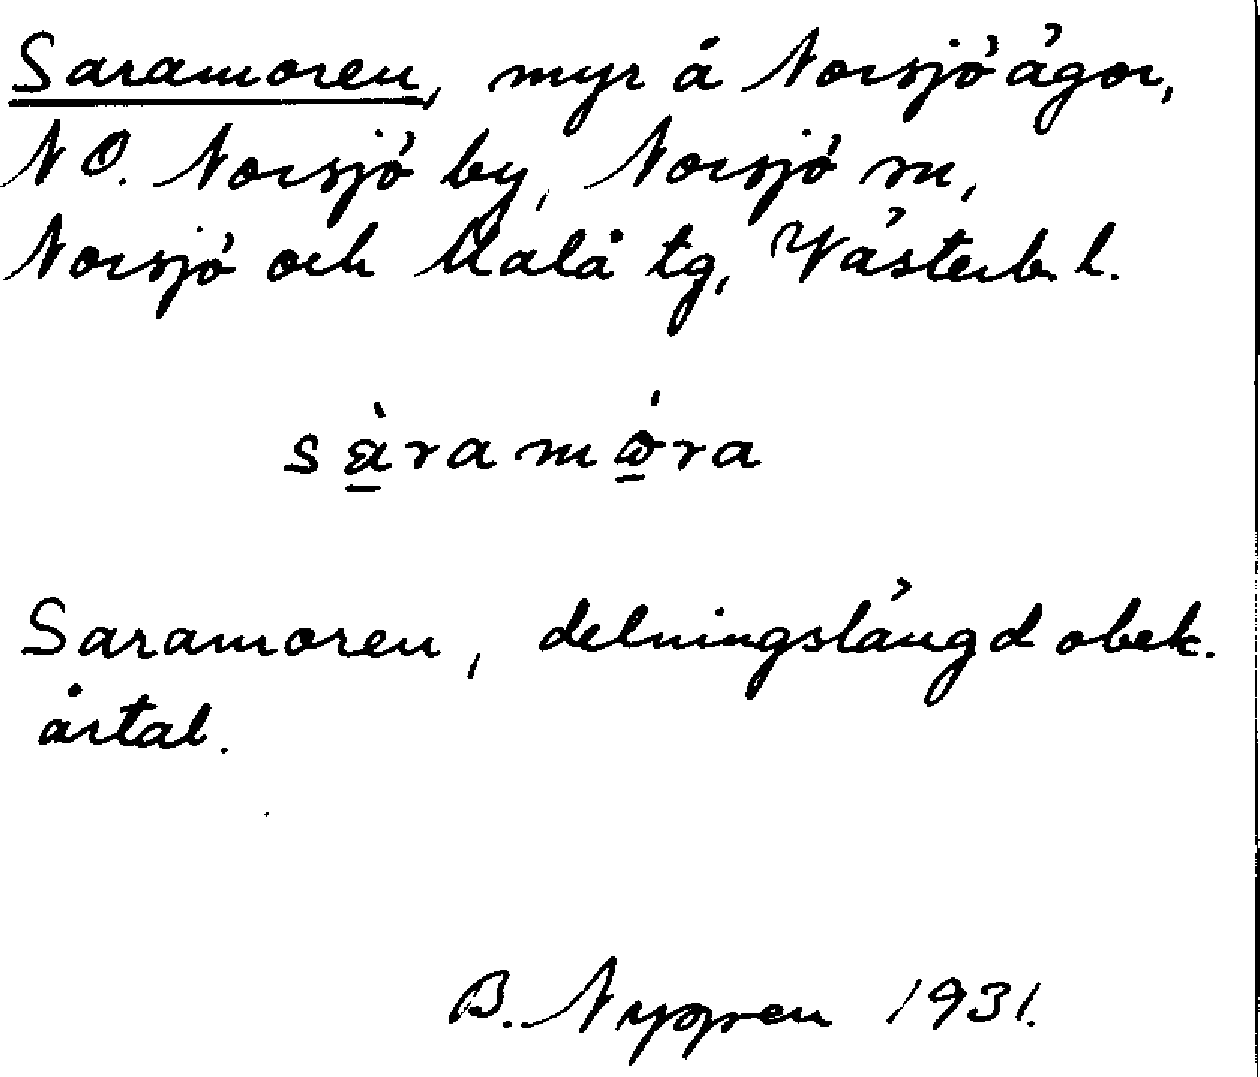 Saramoren, myr å Norsjö ägor,
NO. Norsjö by, Norsjö sn,
Norsjö och Malå tg, Västerb. l.
sàramǿra
Saramoren, delningslängd obek.
årtal.
B. Nygren 1931.